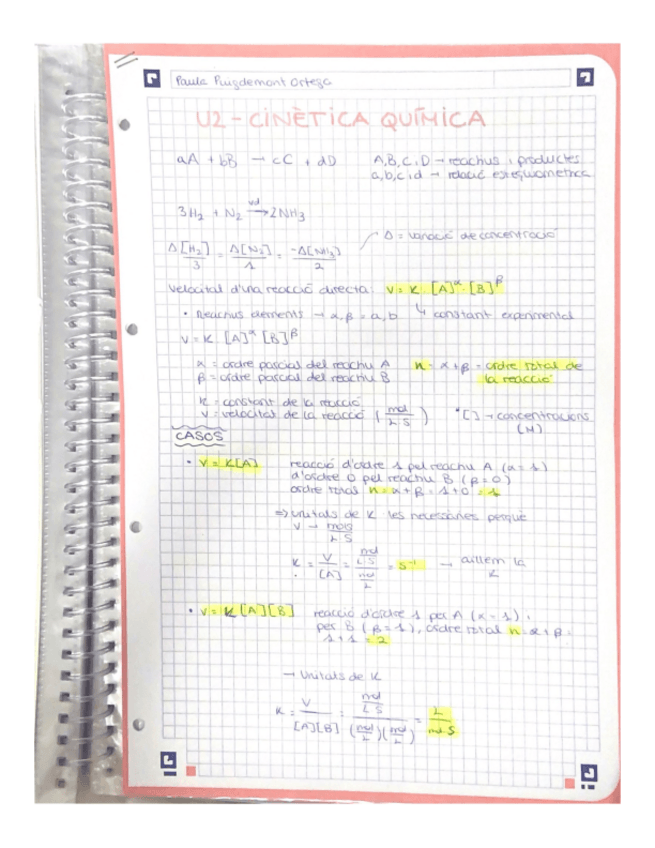 Paula Puigdemont Ortega
U2 - CINÈTICA QUÍMICA
aA + bB → cC + dD
A,B,C i D → reactius i productes
a,b,c i d → relació estequiomètrica
3H₂ + N₂ →(vd) 2NH₃
Δ = variació de concentració
Δ[H₂]/3 = Δ[N₂]/1 = -Δ[NH₃]/2
Velocitat d'una reacció directa: V = K · [A]^α · [B]^β
• Reactius elements → α, β = a, b ↳ constant experimental
V = K [A]^α [B]^β
α = ordre parcial del reactiu A
β = ordre parcial del reactiu B
n = α + β = ordre total de la reacció
K = constant de la reacció
V = velocitat de la reacció (mol/L·S)
*[ ] → concentracions (M)
CASOS
• V = K[A] reacció d'ordre 1 pel reactiu A (α = 1)
d'ordre 0 pel reactiu B (β = 0)
ordre total n = α + β = 1 + 0 = 1
⇒ Unitats de K les necessàries perquè
V → mols/L·S
K = V/[A] = (mol/L·S)/(mol/L) = S⁻¹ → aïllem la K
• V = K[A][B] reacció d'ordre 1 per A (α = 1) i
per B (β = 1), ordre total n = α + β =
1 + 1 = 2
→ Unitats de K
K = V/[A][B] = (mol/L·S)/((mol/L)(mol/L)) = L/mol·S